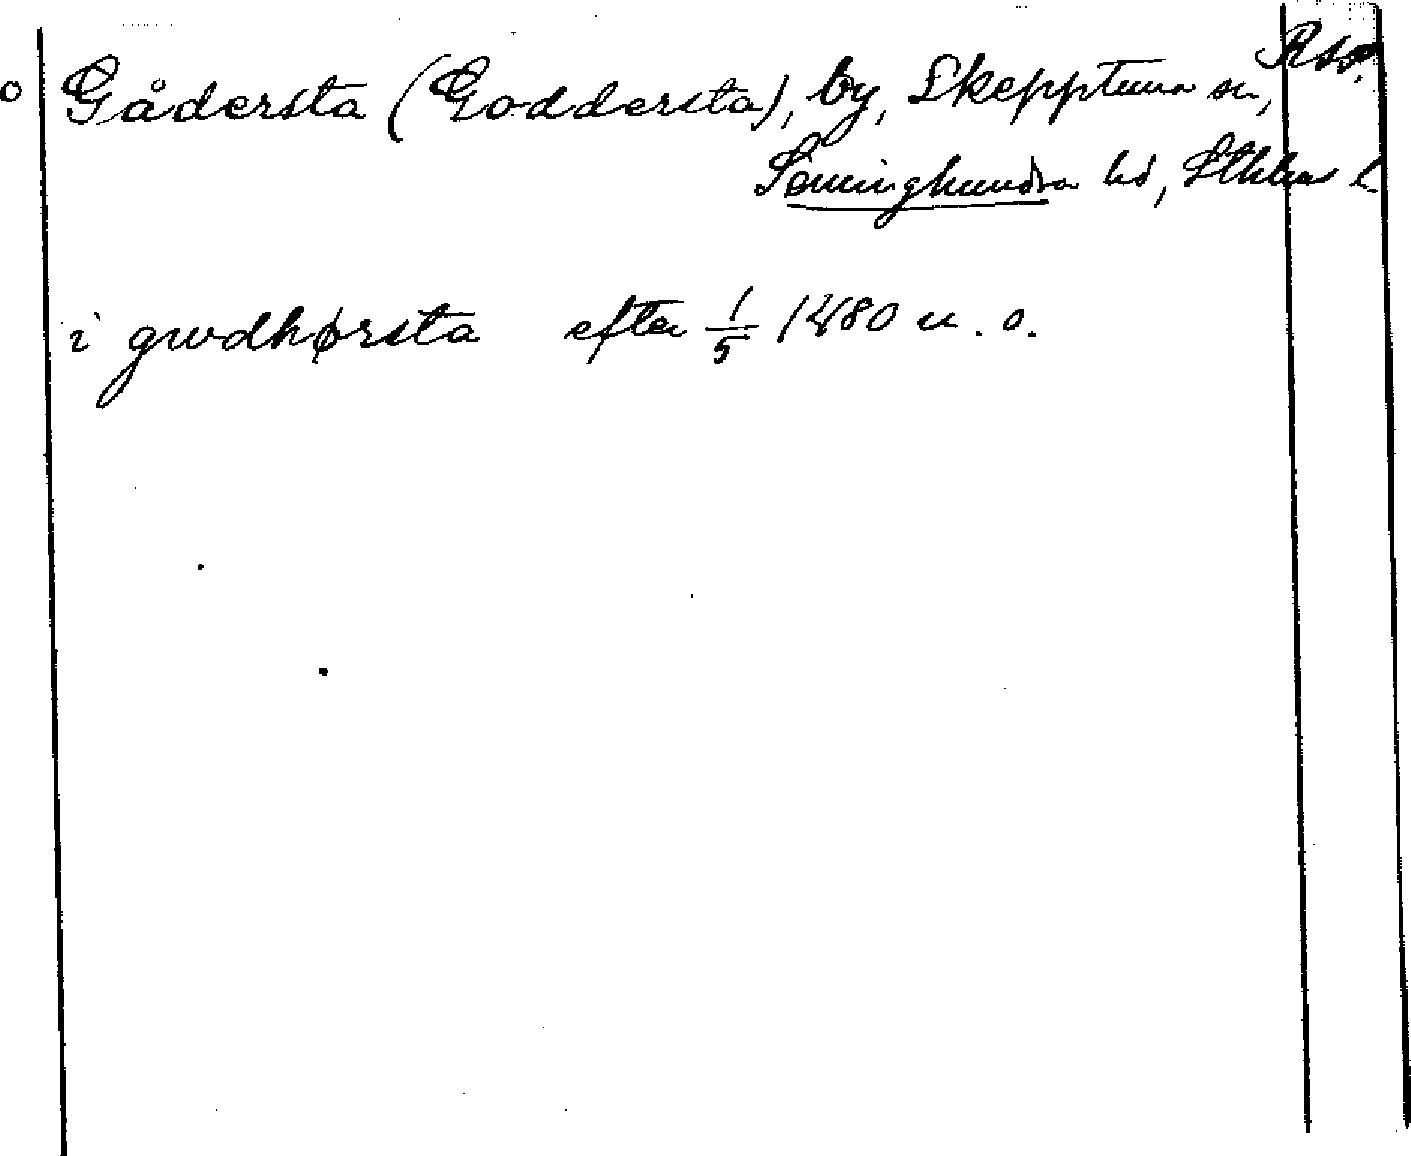 Gådersta (Goddersta), by, Skepptuna sn,
Seminghundra hd, Sthlms l
i gwdhørsta efter 1/5 1480 u. o.